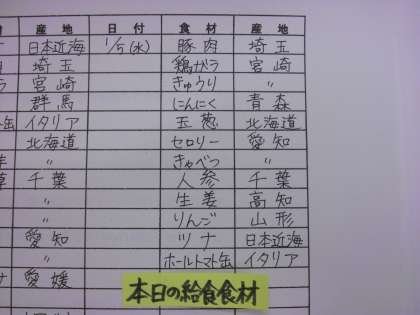 産地 日付 食材 産地
日本近海 1/5(水) 豚肉 埼玉
埼玉 鶏ガラ 宮崎
宮崎 きゅうり 〃
群馬 にんにく 青森
ト缶 イタリア 玉葱 北海道
北海道 セロリー 愛知
〃 きゃべつ 〃
千葉 人参 千葉
〃 生姜 高知
〃 りんご 山形
愛知 ツナ 日本近海
〃 ホールトマト缶 イタリア
愛媛
本日の給食食材